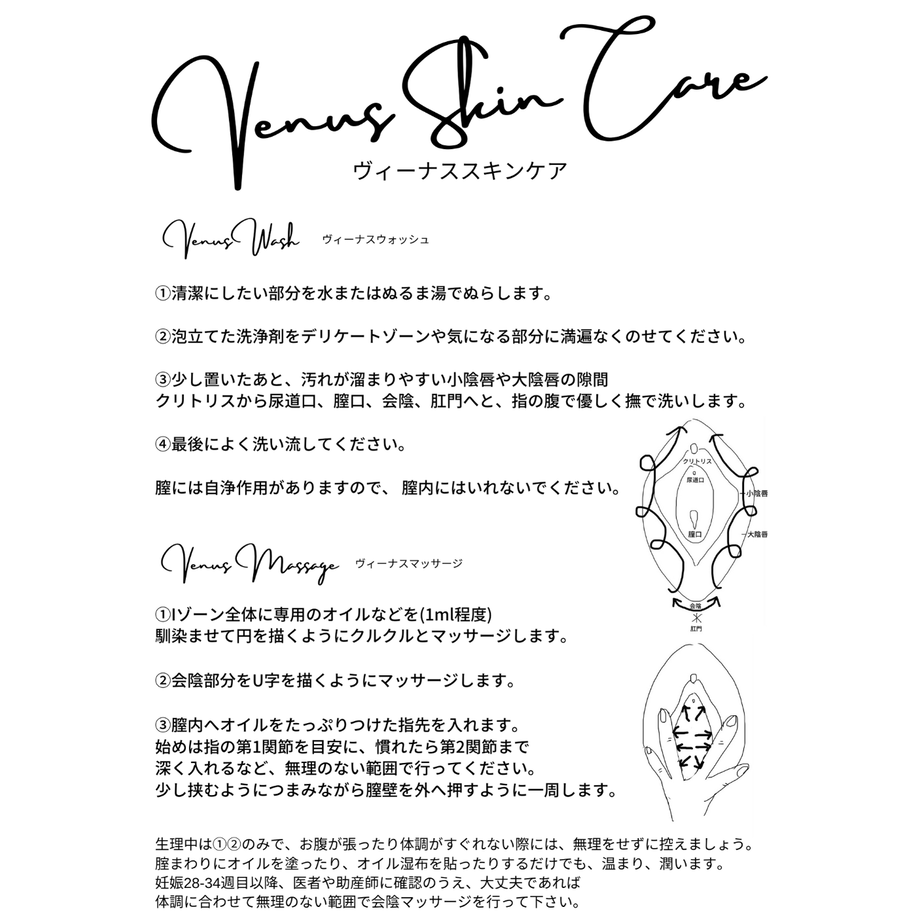 Venus Skin Care
ヴィーナススキンケア
Venus Wash ヴィーナスウォッシュ
①清潔にしたい部分を水またはぬるま湯でぬらします。
②泡立てた洗浄剤をデリケートゾーンや気になる部分に満遍なくのせてください。
③少し置いたあと、汚れが溜まりやすい小陰唇や大陰唇の隙間
クリトリスから尿道口、膣口、会陰、肛門へと、指の腹で優しく撫で洗いします。
④最後によく洗い流してください。
膣には自浄作用がありますので、 膣内にはいれないでください。
クリトリス
尿道口
小陰唇
膣口
大陰唇
会陰
肛門
Venus Massage ヴィーナスマッサージ
①Iゾーン全体に専用のオイルなどを(1ml程度)
馴染ませて円を描くようにクルクルとマッサージします。
②会陰部分をU字を描くようにマッサージします。
③膣内へオイルをたっぷりつけた指先を入れます。
始めは指の第1関節を目安に、慣れたら第2関節まで
深く入れるなど、無理のない範囲で行ってください。
少し挟むようにつまみながら膣壁を外へ押すように一周します。
生理中は①②のみで、お腹が張ったり体調がすぐれない際には、無理をせずに控えましょう。
膣まわりにオイルを塗ったり、オイル湿布を貼ったりするだけでも、温まり、潤います。
妊娠28-34週目以降、医者や助産師に確認のうえ、大丈夫であれば
体調に合わせて無理のない範囲で会陰マッサージを行って下さい。